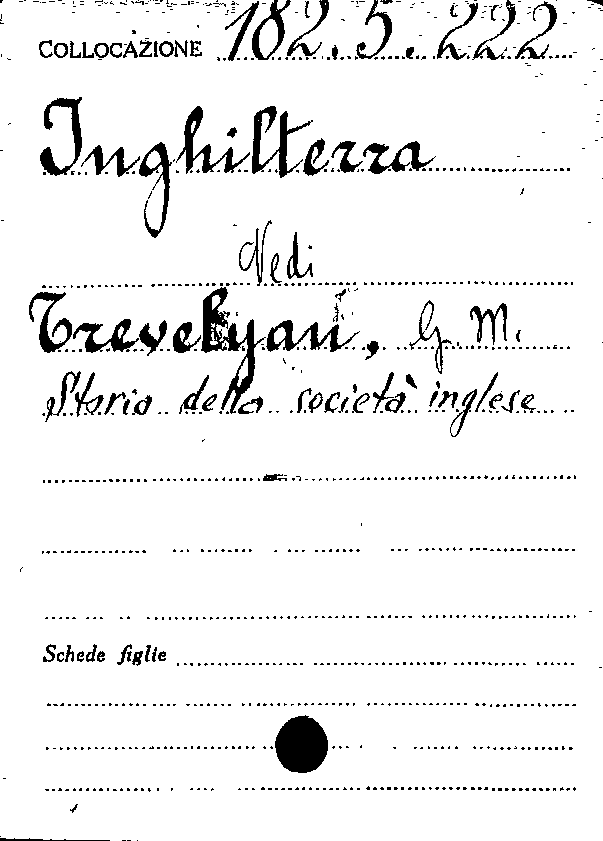 COLLOCAZIONE 182.5.222
Inghilterra
Vedi
Trevelyan, G. M.
Storia della società inglese
Schede figlie